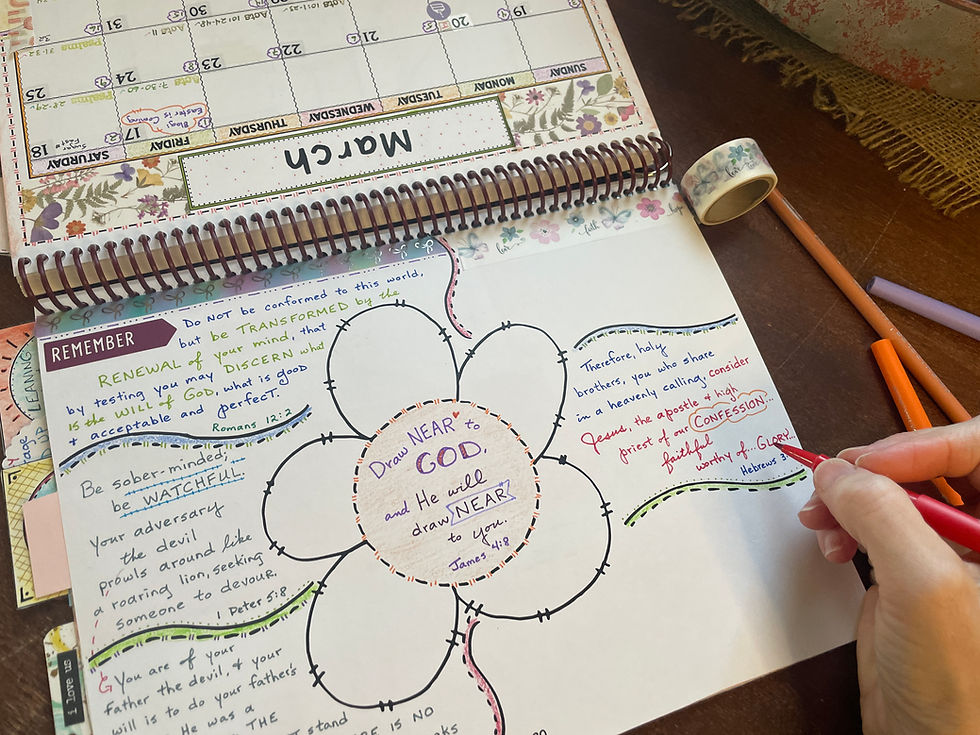 March
SUNDAY MONDAY TUESDAY WEDNESDAY THURSDAY FRIDAY SATURDAY
17
18
Blog:
Easter is Coming
19
20
21
22
23
24
25
Acts 7:30-60
Psalms
28-29
30
31
Acts 10:1-23
Acts 10:24-48
Acts 11
Psalms
31-32
love
faith
hope
love
REMEMBER
Do NOT be conformed to this world,
but be TRANSFORMED by the
RENEWAL of your mind, that
by testing you may DISCERN what
is the WILL of God, what is good
+ acceptable and perfect.
Romans 12:2
Be sober-minded;
be WATCHFUL.
your adversary
the devil
prowls around like
a roaring lion, seeking
someone to devour.
1 Peter 5:8
You are of your
father the devil, & your
will is to do your father's
He was a
THE
stand
IS NO
Draw NEAR to
GOD,
and He will
draw NEAR
to you.
James 4:8
Therefore, holy
brothers, you who share
in a heavenly calling, consider
Jesus, the apostle + high
priest of our CONFESSION...
faithful
worthy of... GLORY...
Hebrews 3:
i love us
LEANING